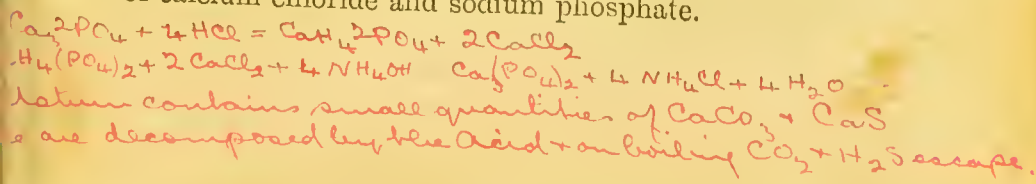 of calcium chloride and sodium phosphate.
Ca₃2PO₄ + 4HCl = CaH₄2PO₄ + 2CaCl₂
.H₄(PO₄)₂ + 2 CaCl₂ + 4 NH₄OH Ca₃(PO₄)₂ + 4 NH₄Cl + 4 H₂O
contains small quantities of CaCO₃ + CaS
e are decomposed by the Acid + on boiling CO₂ + H₂S escape.